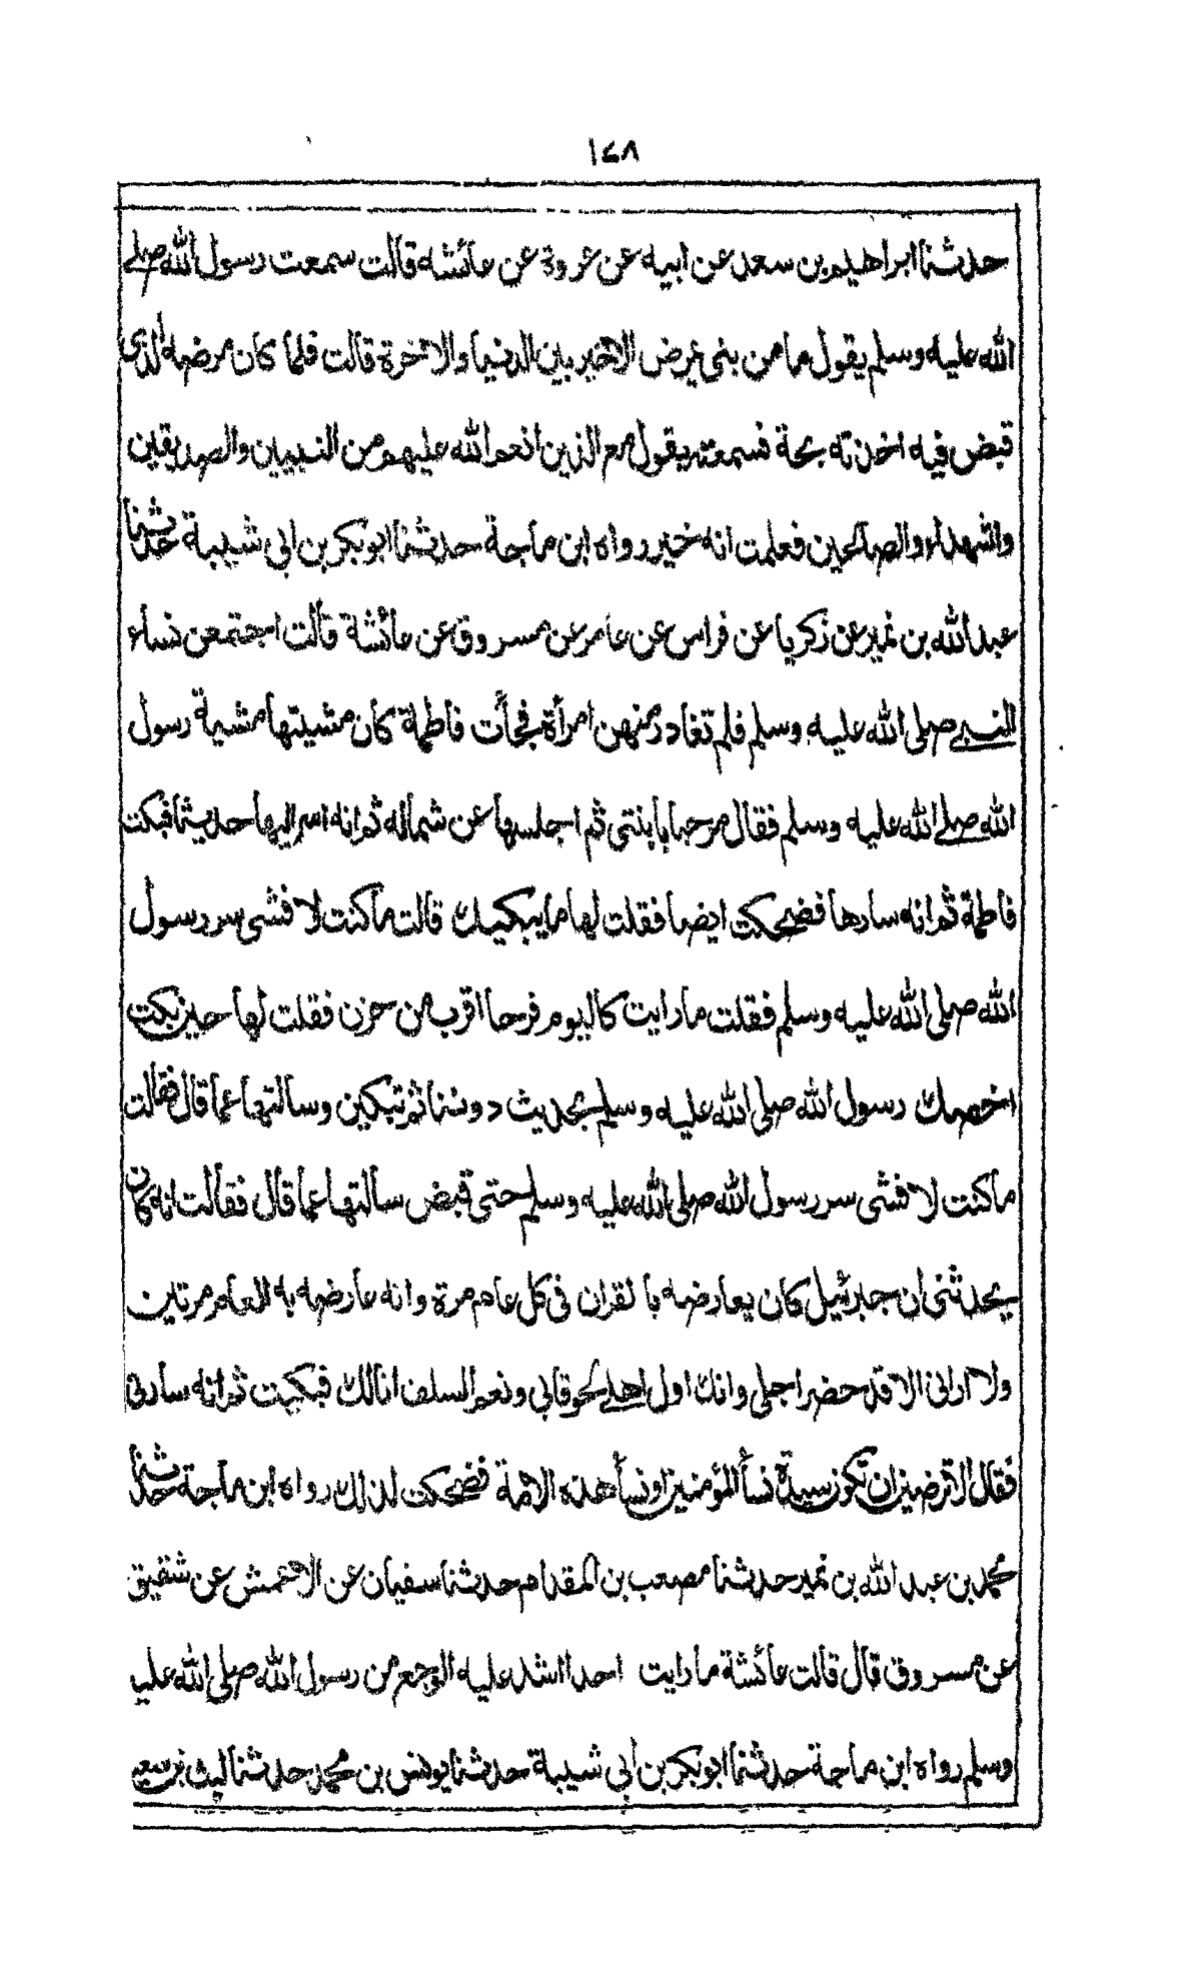 ١٤٨
حدثنا ابراهيم بن سعد عن ابيه عن عروة عن عائشه قالت سمعت رسول الله صلى
الله عليه وسلم يقول ما من بنى يمرض الا خير بين الدنيا والاخرة قالت فلما كان مرضه الذى
قبض فيه اخذته بحة فسمعته يقول مع الذين انعم الله عليهم من النبيين والصديقين
والشهداء والصالحين فعلمت انه خير رواه ابن ماجة حدثنا ابوبكر بن ابى شيبة حدثنا
عبد الله بن نمير عن زكريا عن فراس عن عامر عن مسروق عن عائشة قالت اجتمعن نساء
النبي صلى الله عليه وسلم فلم تغادر منهن امرأة فجأت فاطمة كأن مشيتها مشية رسول
الله صلى الله عليه وسلم فقال مرحبا بابنتى ثم اجلسها عن شماله ثم انه اسر اليها حديثا فبكت
فاطمة ثم انه سارها فضحكت ايضا فقلت لها ما يبكيك قالت ما كنت لافشى سر رسول
الله صلى الله عليه وسلم فقلت ما رايت كاليوم فرحا اقرب من حزن فقلت لها حين بكت
اخصك رسول الله صلى الله عليه وسلم بحديث دوننا ثم تبكين وسالتها عما قال فقالت
ما كنت لافشى سر رسول الله صلى الله عليه وسلم حتى قبض سالتها عما قال فقالت انه كان
يحدثنى ان جبرئيل كان يعارضه بالقران فى كل عام مرة وانه عارضه به العام مرتين
ولا ارانى الا قد حضر اجلى وانك اول اهلى لحوقا بى ونعم السلف انا لك فبكيت ثم انه سارنى
فقال الا ترضين ان تكون سيدة نسأ المؤمنين او نسأ هذه الامة فضحكت لذلك رواه ابن ماجة حدثنا
محمد بن عبد الله بن نمير حدثنا مصعب بن المقدام حدثنا سفيان عن الاعمش عن شقيق
عن مسروق قال قالت عائشة ما رايت احدا اشد عليه الوجع من رسول الله صلى الله عليه
وسلم رواه ابن ماجة حدثنا ابوبكر بن أبي شيبة حدثنا يونس بن محمد حدثنا ليث بن سعد